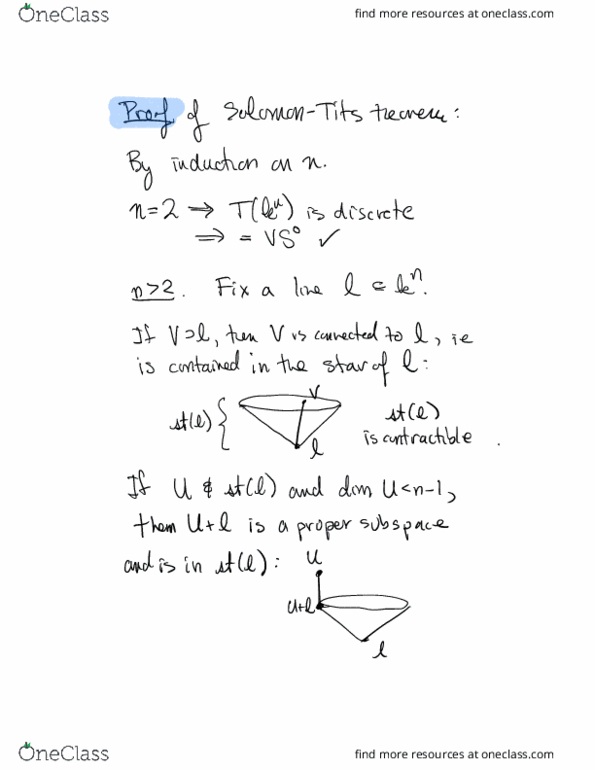 OneClass
find more resources at oneclass.com
Proof of Solomon-Tits theorem:
By induction on n.
n=2 ⇒ T(kⁿ) is discrete
⇒ = VS⁰ ✓
n>2. Fix a line l ⊆ kⁿ.
If V⊃l, then V is connected to l, ie
is contained in the star of l:
st(l) { V l st(l)
is contractible .
If U ∉ st(l) and dim U<n-1,
then U+l is a proper subspace
and is in st(l): U
U+l
l
OneClass
find more resources at oneclass.com